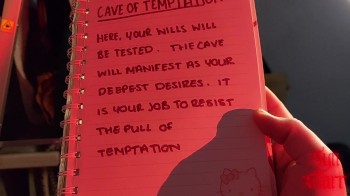 CAVE OF TEMPTATION
HERE, YOUR WILLS WILL
BE TESTED. THE CAVE
WILL MANIFEST AS YOUR
DEEPEST DESIRES. IT
IS YOUR JOB TO RESIST
THE PULL OF
TEMPTATION